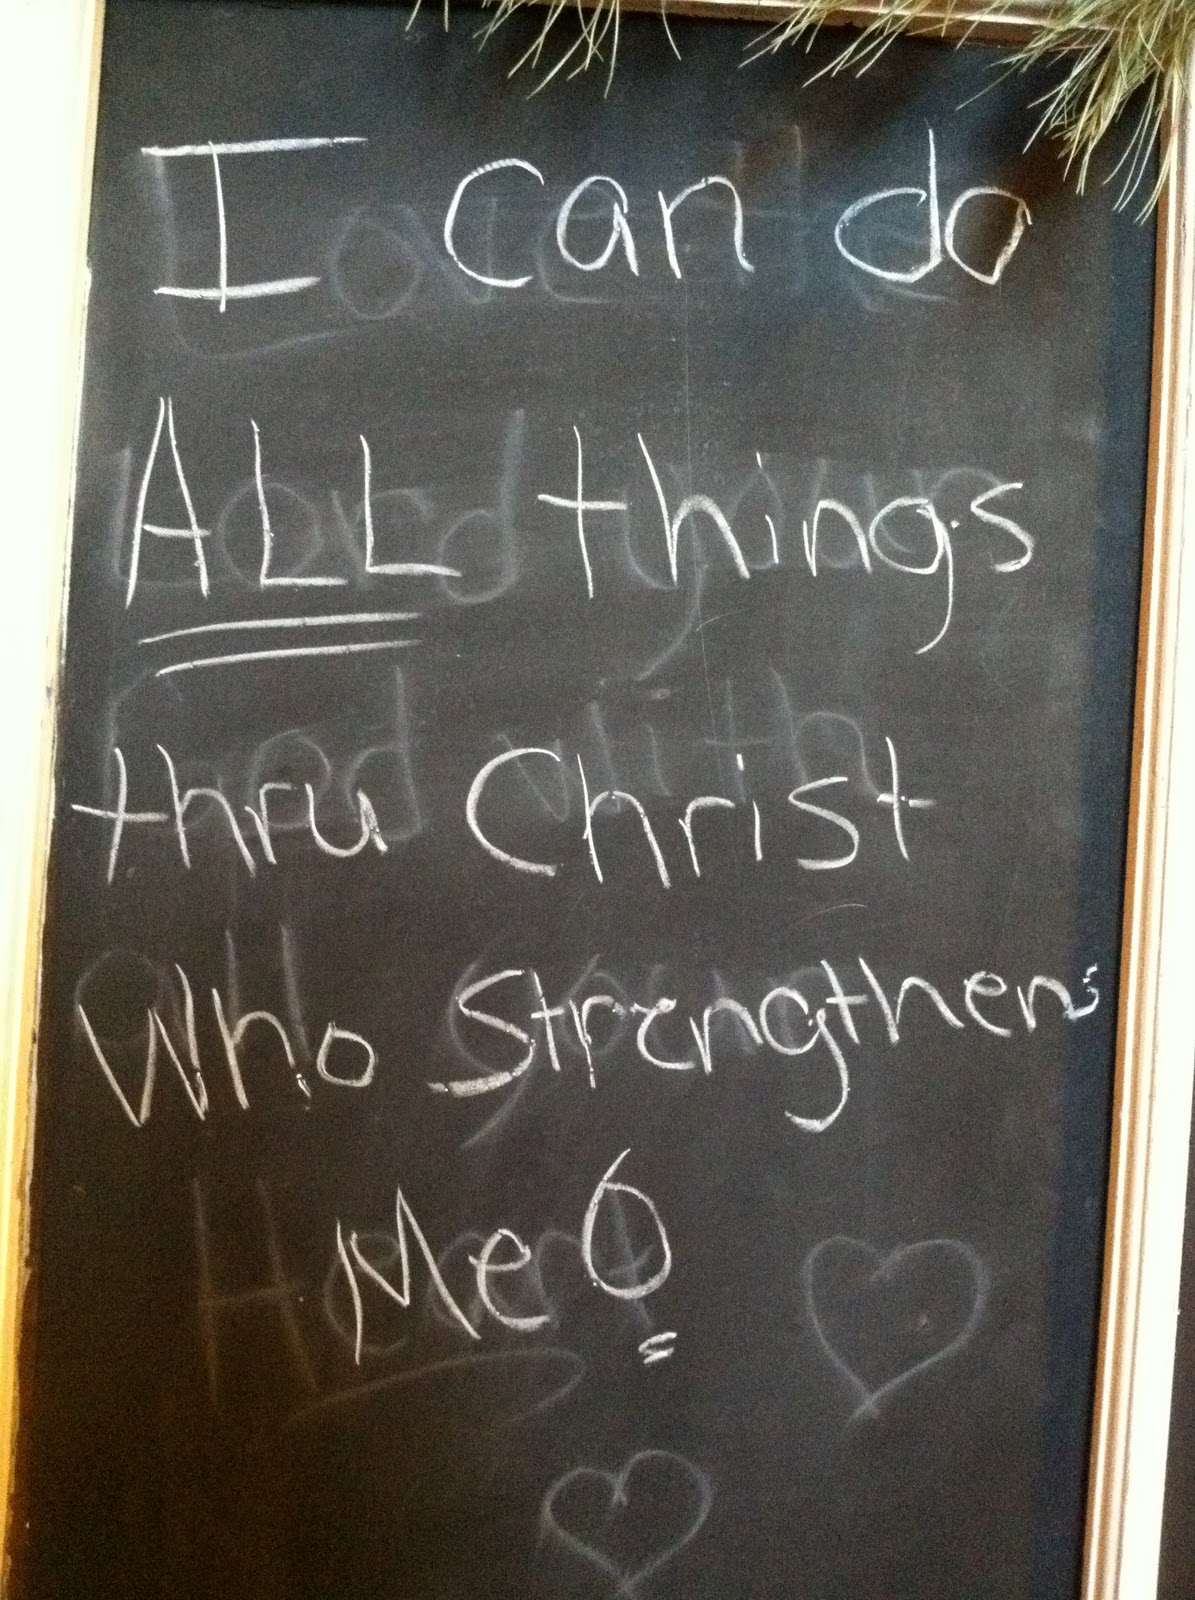 I can do
ALL things
thru Christ
Who Strengthens
Me!